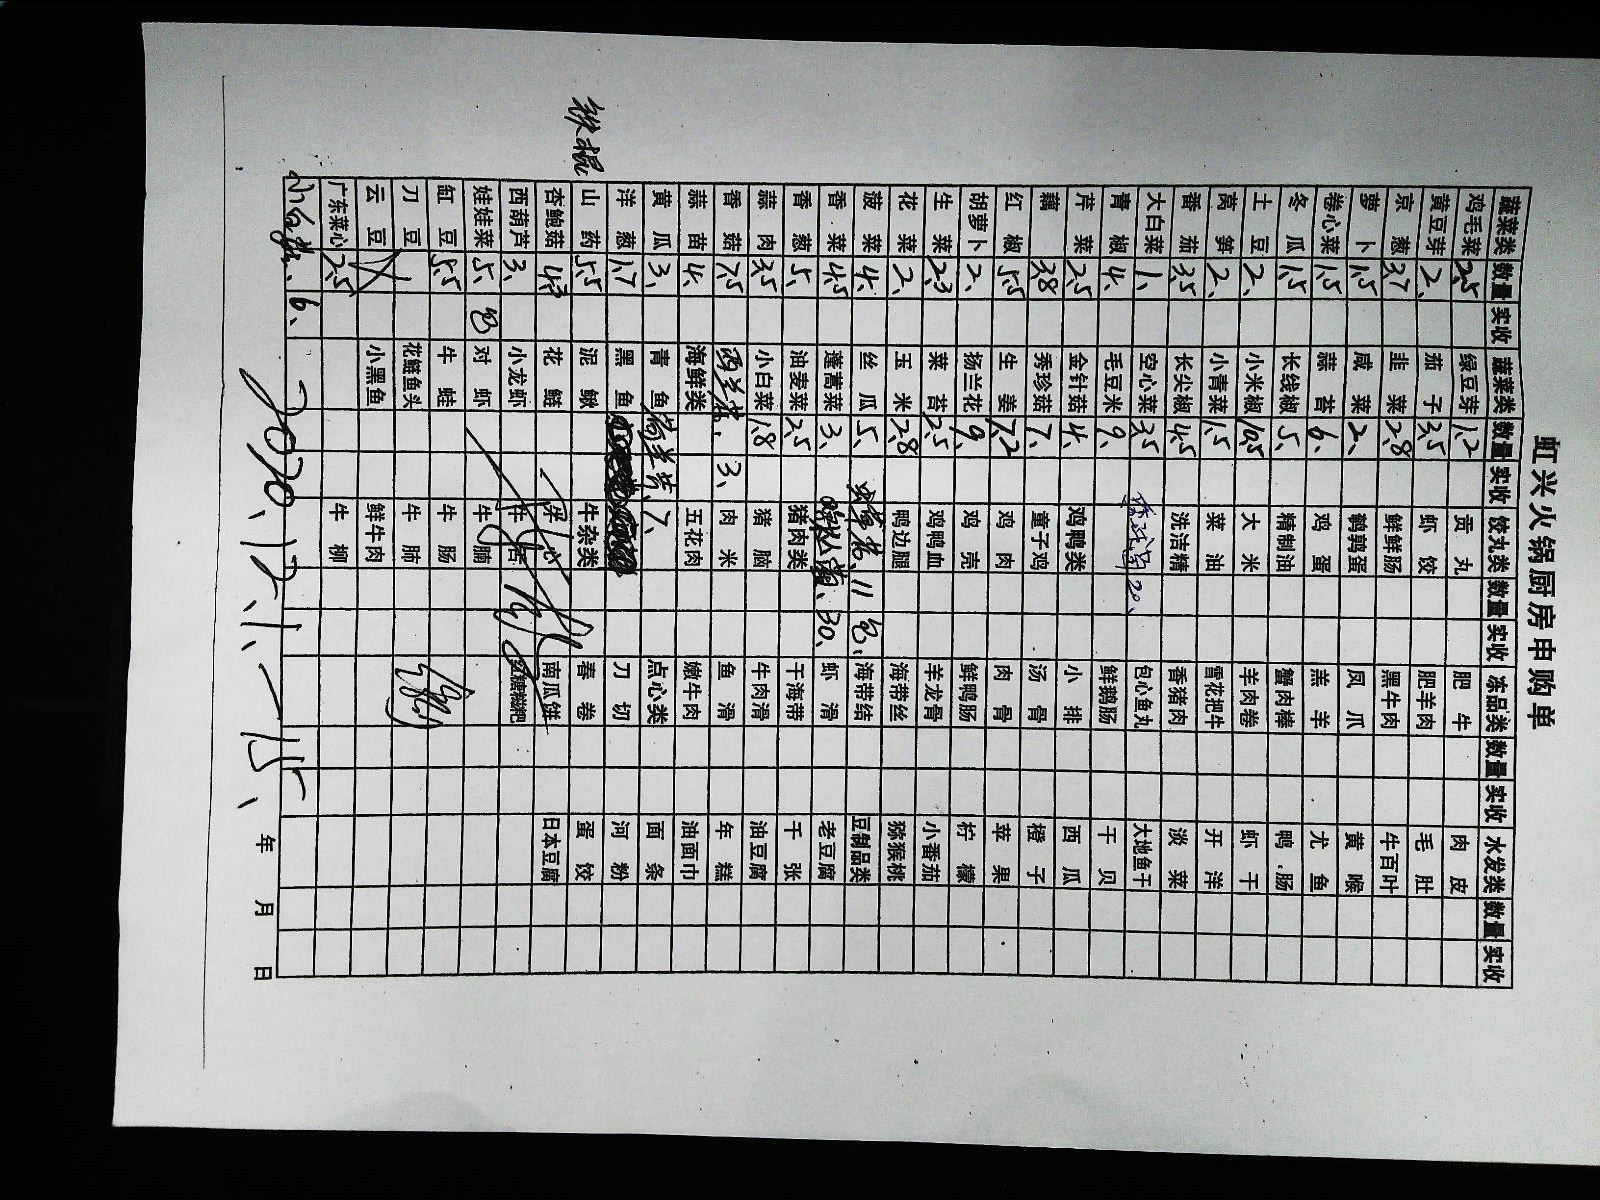 虹兴火锅厨房申购单
蔬菜类 数量 实收 蔬菜类 数量 实收 饺丸类 数量 实收 冻品类 数量 实收 水发类 数量 实收
鸡毛菜 2.5 绿豆芽 1.2 贡丸 肥牛 肉皮
黄豆芽 2、 茄子 3.5 虾饺 肥羊肉 毛肚
京葱 3.7 韭菜 2.8 鲜鲜肠 黑牛肉 牛百叶
萝卜 1.5 咸菜 2、 鹌鹑蛋 凤爪 黄喉
卷心菜 1.5 蒜苔 6、 鸡蛋 羔羊 尤鱼
冬瓜 1.5 长线椒 5、 精制油 蟹肉棒 鸭.肠
土豆 2、 小米椒 10.5 大米 羊肉卷 虾干
莴笋 2、 小青菜 1.5 菜油 雪花把牛 开洋
番茄 3.5 长尖椒 4.5 洗洁精 香猪肉 淡菜
大白菜 1、 空心菜 3.5 20、 包心鱼丸 大地鱼干
青椒 4、 毛豆米 9、 鲜鹅肠 干贝
芹菜 2.5 金针菇 4、 鸡鸭类 小排 西瓜
藕 3.8 秀珍菇 7、 童子鸡 汤骨 橙子
红椒 5.5 生姜 7.2 鸡肉 肉骨 苹果
胡萝卜 2、 扬兰花 9、 鸡壳 鲜鸭肠 柠檬
生菜 2.3 菜苔 2.5 鸡鸭血 羊龙骨 小番茄
花菜 2、 玉米 2.8 鸭边腿 海带丝 猕猴桃
菠菜 4、 丝瓜 5、 11包、 海带结 豆制品类
香菜 4.5 蓬蒿菜 3、 30、 虾滑 老豆腐
香葱 5、 油麦菜 2.5 猪肉类 干海带 千张
蒜肉 3.5 小白菜 1.8 猪脑 牛肉滑 油豆腐
香菇 7.5 西兰花、 3、 肉米 鱼滑 年糕
蒜苗 4、 海鲜类 五花肉 嫩牛肉 油面巾
黄瓜 3、 青鱼 7、 点心类 面条
洋葱 1.7 黑鱼 刀切 河粉
铁棍 山药 5.5 泥鳅 牛杂类 春卷 蛋饺
杏鲍菇 4.3 花鲢 南瓜饼 日本豆腐
西葫芦 3、 小龙虾 红糖糍粑
娃娃菜 5、 包 对虾 牛腩
缸豆 5.5 牛蛙 牛肠
刀豆 花鲢鱼头 牛肺
云豆 小黑鱼 鲜牛肉
广东菜心 2.5 牛柳
6、
2020、12、1—15、 年 月 日